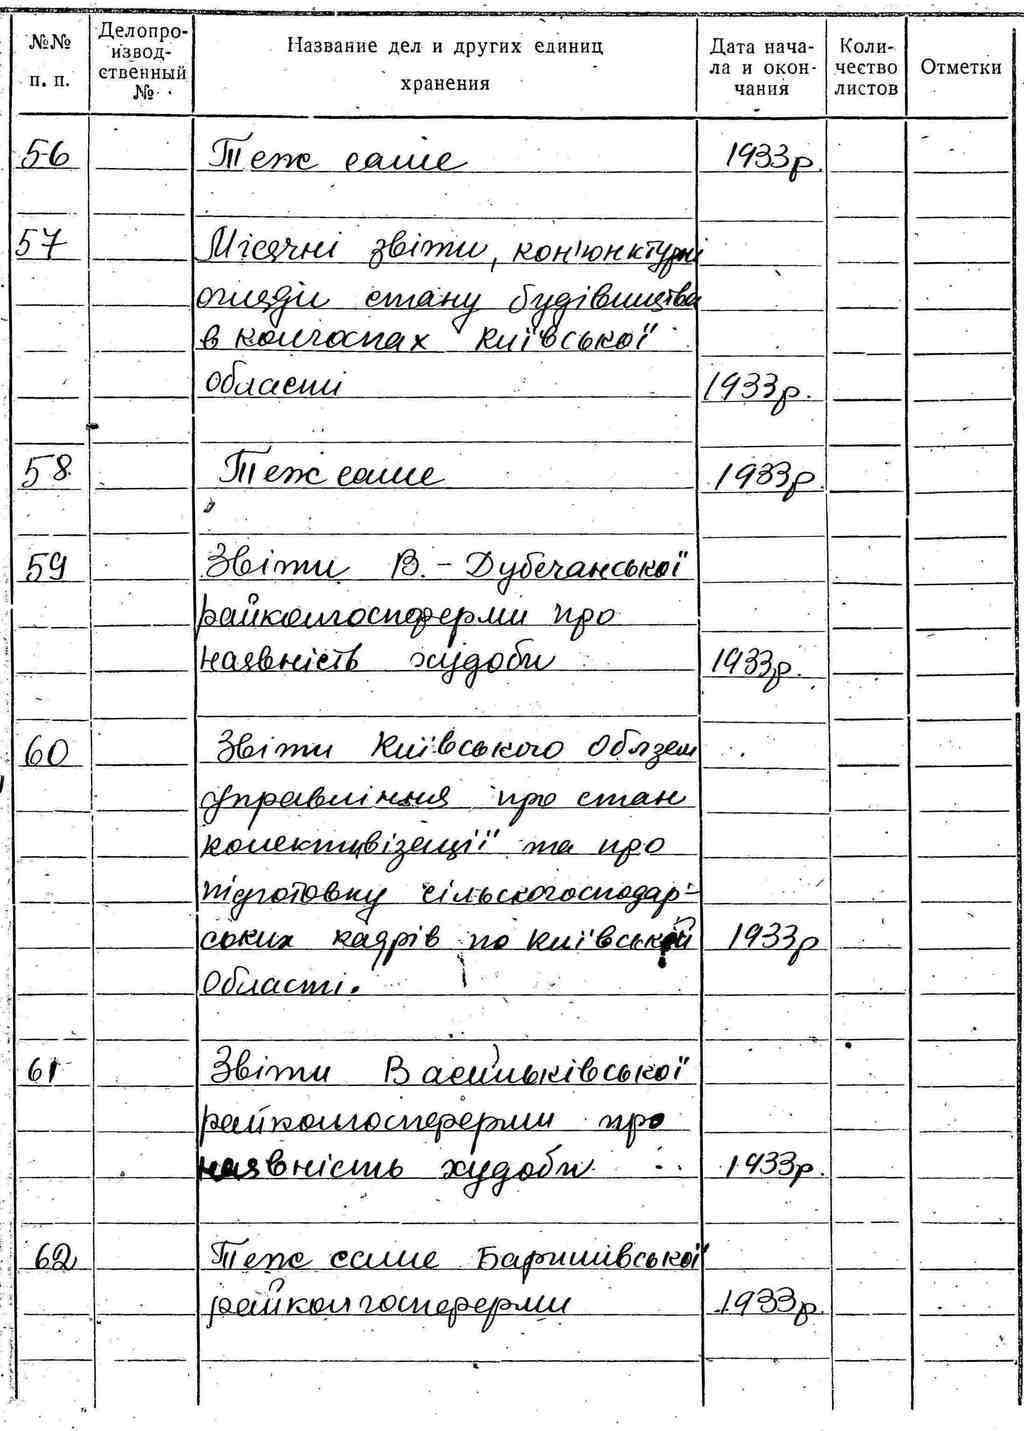 №№ п. п.
Делопро-
извод-
ственный
№
Название дел и других единиц
хранения
Дата нача-
ла и окон-
чания
Коли-
чество
листов
Отметки
56 Теж саме 1933р.
57 Місячні звіти, кон'юнктурні
огляди стану будівництва
в колгоспах Київської
області 1933р.
58 Теж саме 1933р.
59 Звіти В.-Дубечанської
райколгоспферми про
наявність худоби 1933р.
60 Звіти Київського Облзем
управління про стан
колективізації та про
підготовку сільськогосподар-
ських кадрів по Київській 1933р
області.
61 Звіти Васильківської
райколгоспферми про
наявність худоби 1933р.
62 Теж саме Баришівської
райколгоспферми 1933р.